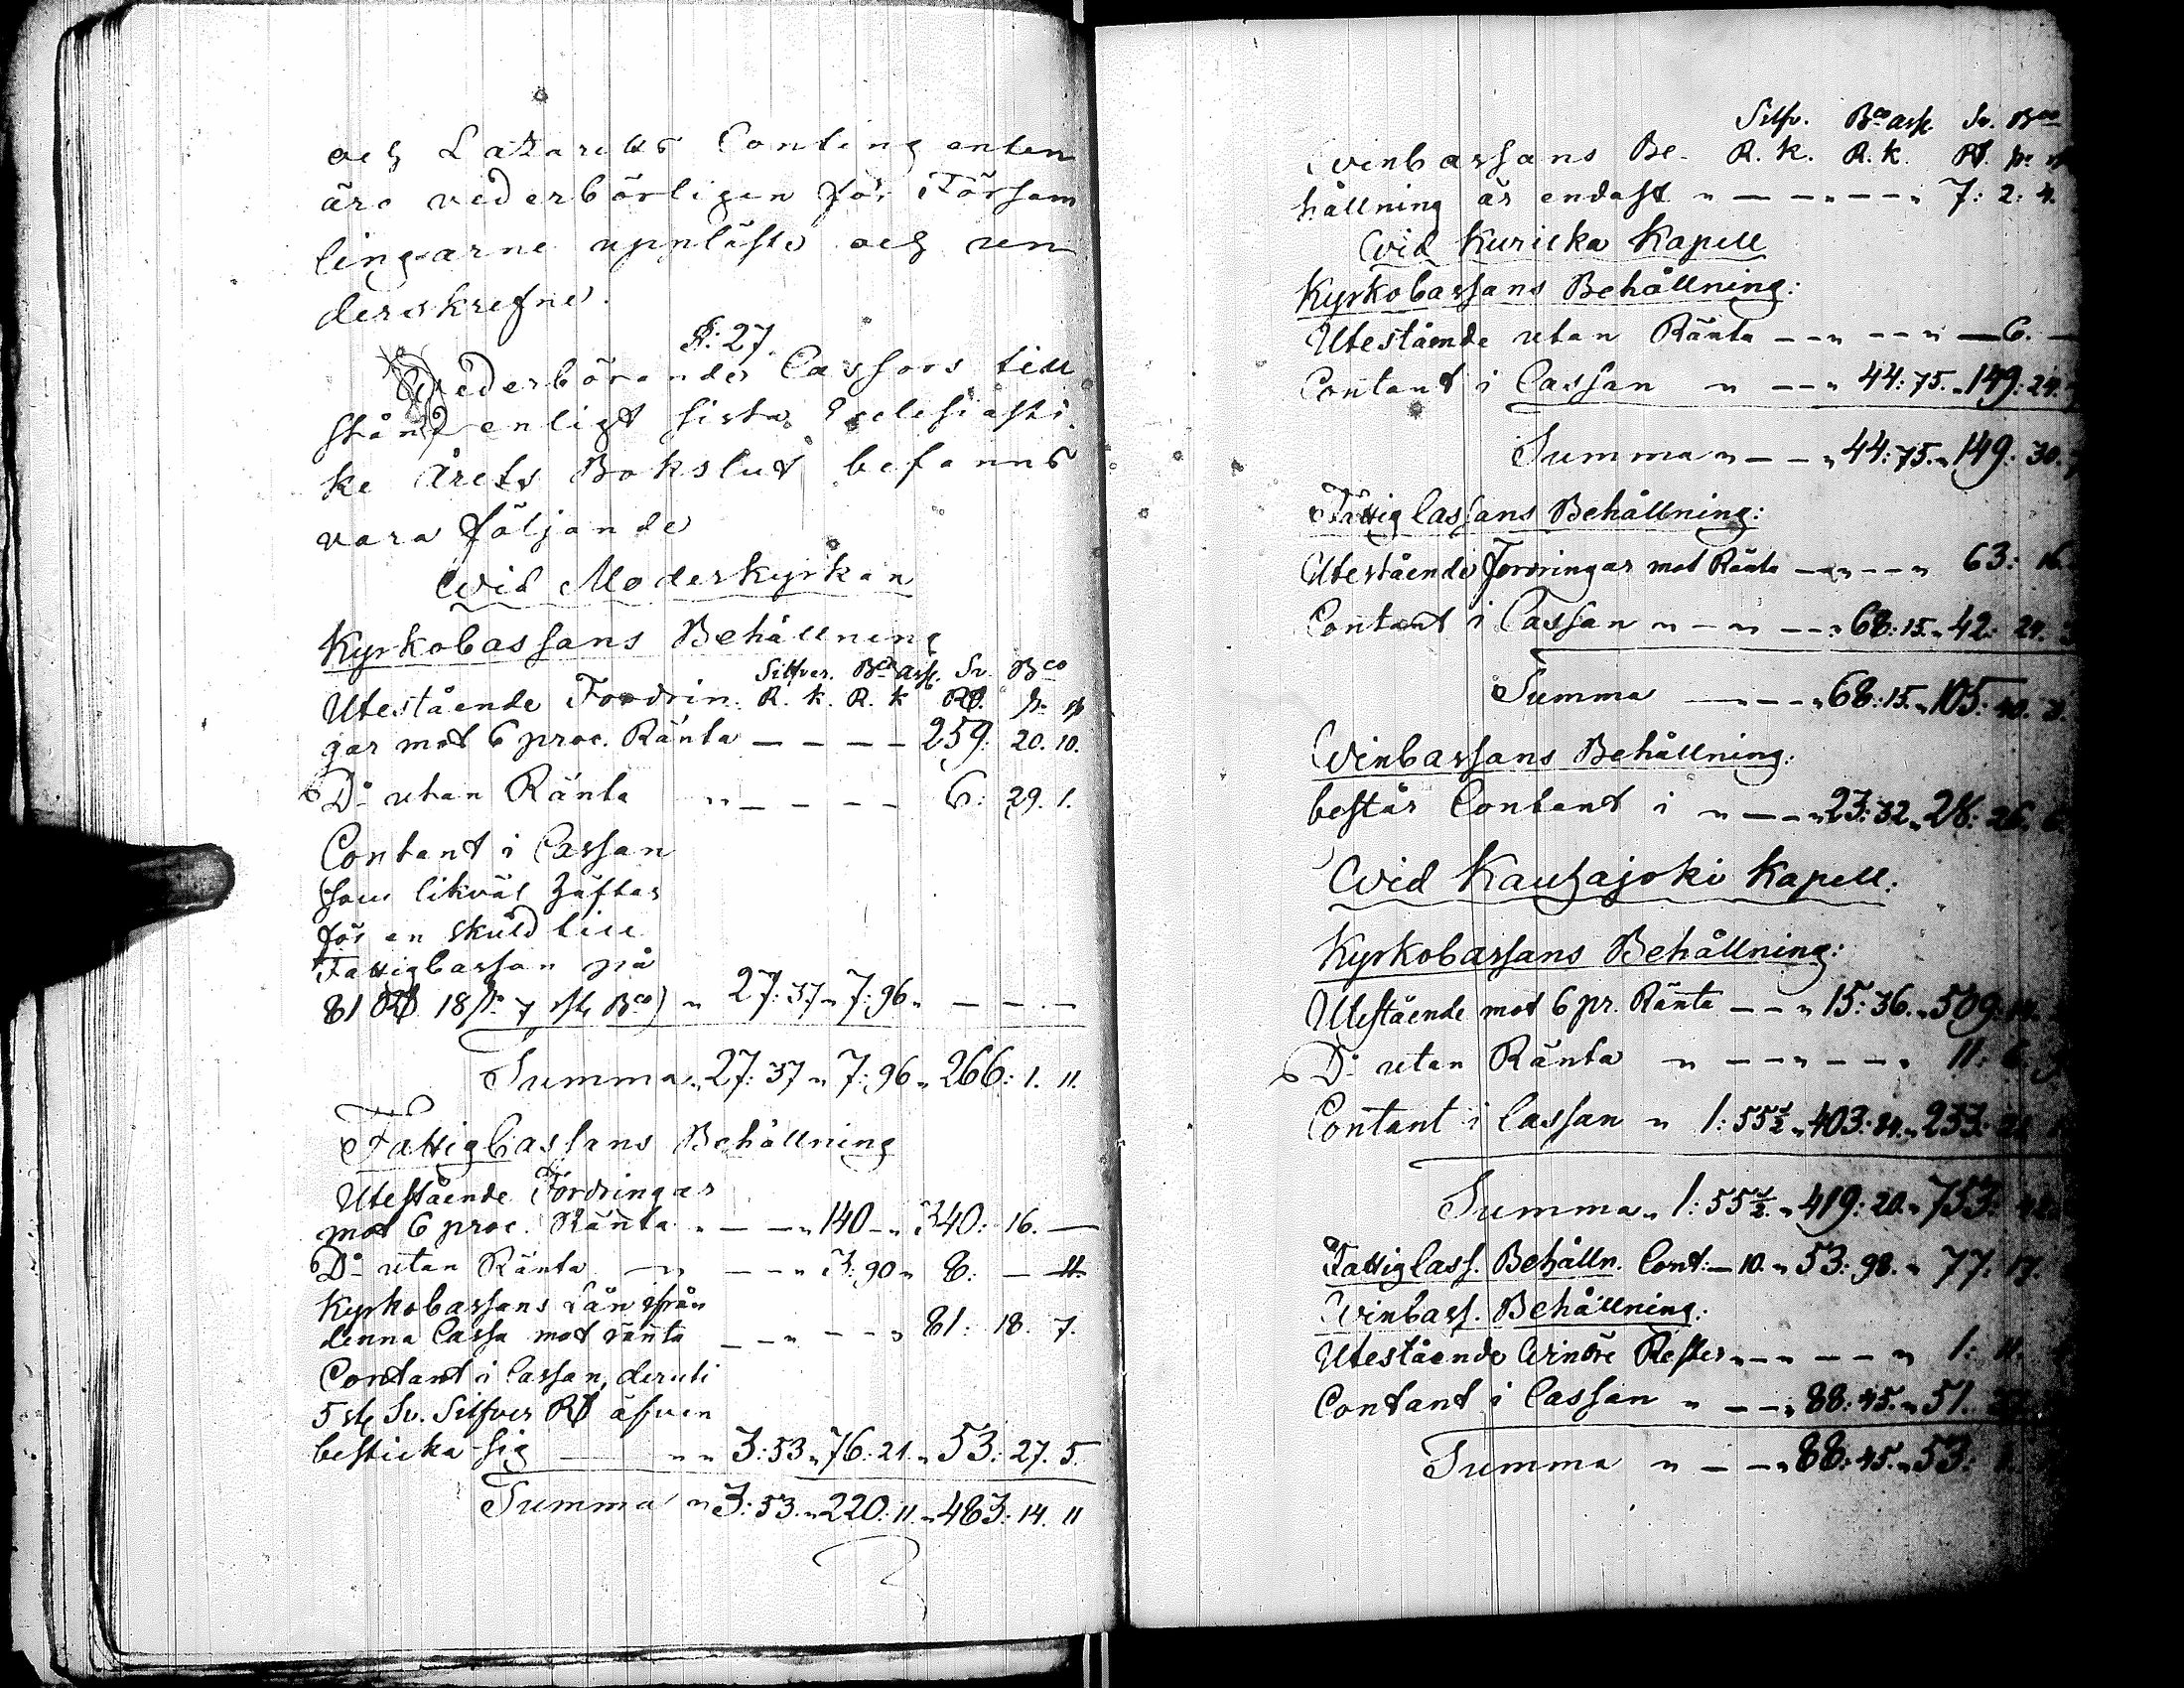 och Lazaretts Contingenten
äro vederbörligen för Försam
lingarne uppläste och un
derskrefne.
§. 27.
Wederbörandes Cassors till
stånd enligt sista Ecclesiasti
ke Årets Bokslut befanns
vara följande
Wid Moderkyrkan
KyrkoCassans Behållning
Silfver. Bco Ass. Sv. Bco
Utestående Fordrin. R. k. R. k Rd. sk. rst
gar mot 6 proc. Ränta — — — — 259: 20. 10.
Do utan Ränta " — — — — 6: 29. 1.
Contant i Cassan
(som likväl häftar
för en skuld till
FattigCassan på
81 Rd 18 sk 7 rst Bco) " 27: 37 " 7: 96 " — — —
Summa " 27: 37 " 7: 96 " 266: 1. 11.
FattigCassans Behållning
Utestående Fordringar
mot 6 proc. Ränta " — — " 140 — " 340: 16. —
Do utan Ränta — " — — " 3: 90 " 8: — —
KyrkoCassans Lån ifrån
denna Cassa mot ränta — — " — — " 81: 18. 7.
Contant i Cassan, deruti
5 st Sv. Silfver Rd äfven
besticka sig — " " 3: 53 " 76: 21. " 53: 27. 5.
Summa " 3: 53. " 220: 11. " 483: 14. 11
Silfv. Bco ass. Sv. Bco
WinCassans Be- R. k. R. k. Rd. sk. rst
hållning är endast " — — — " — — " 7: 2: 4.
Wid Kurikka Kapell
KyrkoCassans Behållning:
Utestående utan Ränta — — " — — " — 6. —
Contant i Cassan " — — " 44: 75. " 149: 24.
Summa " — — " 44: 75. " 149: 30.
FattigCassans Behållning:
Utestående Fordringar mot Ränta — — " — — " 63: 16.
Contant i Cassan " — " — — " 68: 15. " 42: 24.
Summa — — — " 68: 15. " 105: 40.
WinCassans Behållning:
består Contant i " — — " 23: 32 " 28: 26.
Wid Kauhajoki Kapell:
KyrkoCassans Behållning:
Utestående mot 6 pr. Ränta — — " 15: 36. " 509:
Do utan Ränta " — — " — — " 11: 6.
Contant i Cassan " 1: 55½ " 403: 84. " 233:
Summa " 1: 55½. " 419: 20. " 753:
FattigCass. Behålln. Cont: — 10. " 53: 98. " 77: 17.
WinCass. Behållning:
Utestående Winöre Rester " — " — — " 1: 11.
Contant i Cassan " — — " 88: 45. " 51.
Summa " — — " 88: 45. " 53: